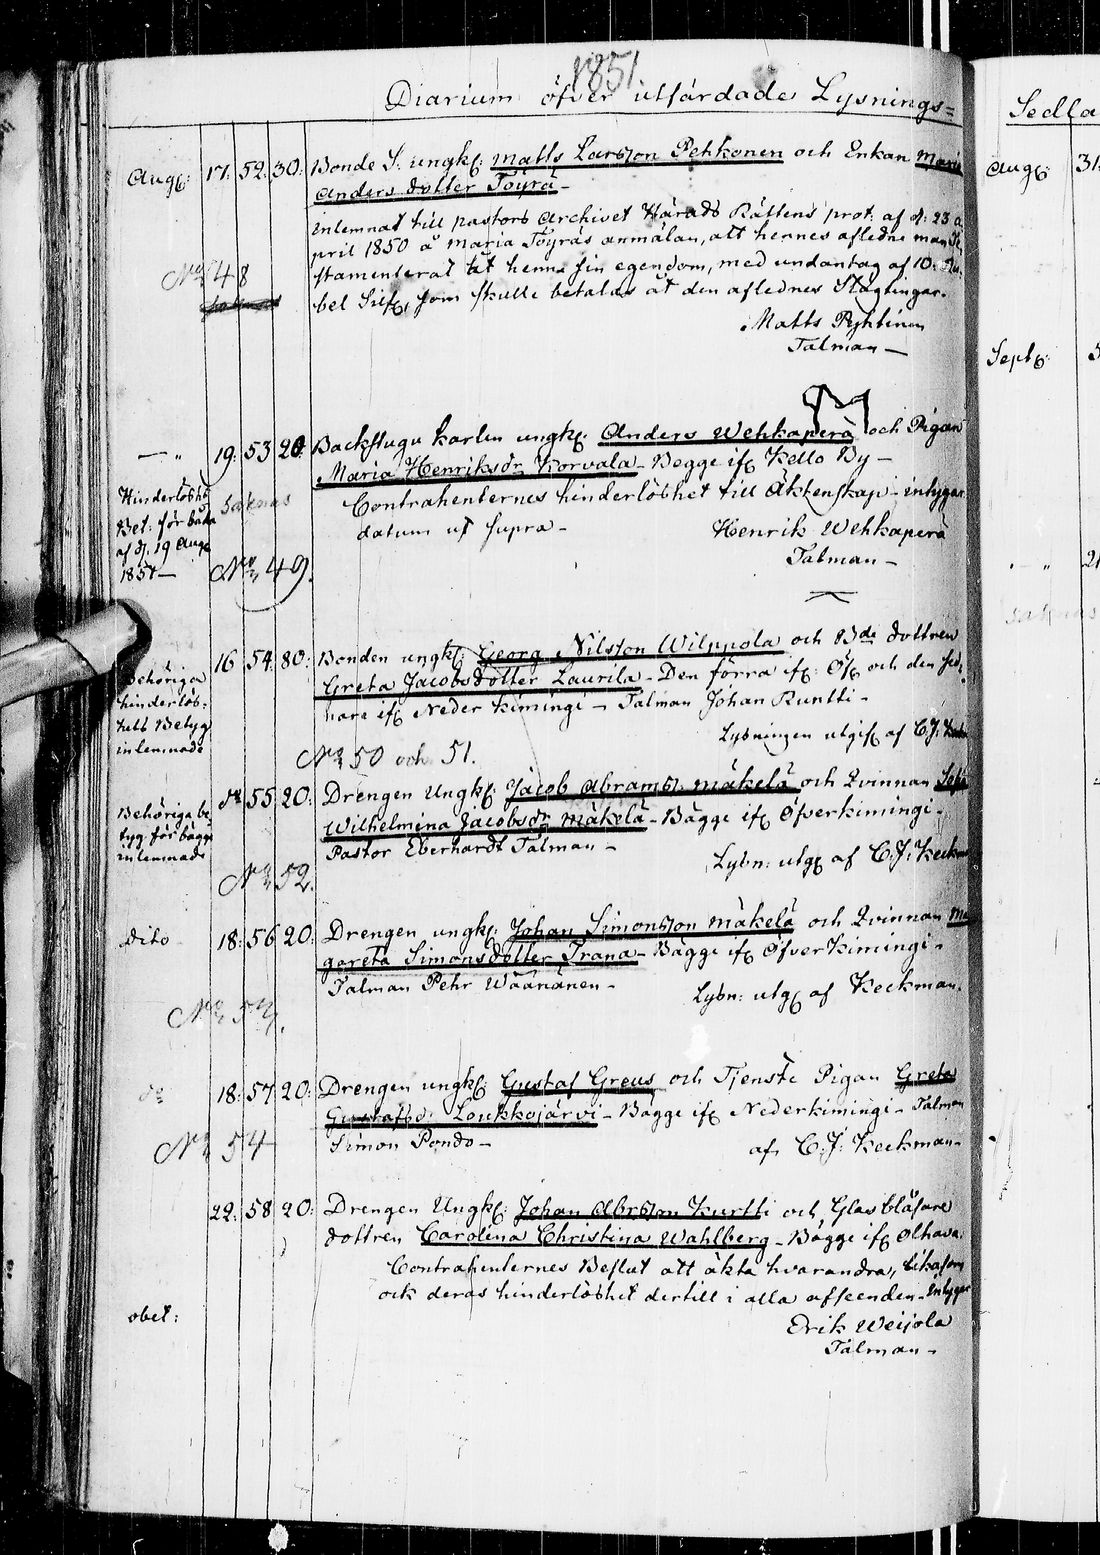 1851
Diarium öfver utfärdade Lysnings=
Aug: 17. 52. 30. Bonde S. ungk: Matts Larsson Pehkonen och Enkan Maria
Anders dotter Töyrä –
Inlemnat till pastors Archivet Härads Rättens prot. af d: 23 A
pril 1850 å Maria Töyräs anmälan, att hennes afledne man te
stamenterat åt henne sin egendom, med undantag af 10: Ru
No 48
bel Silf, som skulle betalas åt den aflednes Slägtingar.
Matts Pyhtinen
Talman –
– " 19. 53 20. Backstugu karlen ungk: Anders Wehkaperä och Pigan
Maria Henriksdr Korvala – Begge if Kello By –
Hinderlöshets
Bet: för båda
af d. 19 Aug
1851 –
saknas
Contrahenternes hinderlöshet till Äktenskap – intygar
datum ut supra –
Henrik Wehkaperä
Talman –
No 49.
16 54. 80. Bonden ungk: Georg Nilsson Wilppola och Bde dottren
Greta Jacobsdotter Laurila – Den förra if: Öf och den sed
nare if Neder Kimingi – Talman Johan Runtti –
Behöriga
hinderlös-
hets Betyg
inlemnade
Lysningen utgif af C. J.
No 50 och 51.
do 55 20. Drengen Ungk: Jacob Abramss. Mäkelä och Qvinnan
Wilhelmina Jacobsdr Mäkelä – Bägge if Öfverkimingi –
Pastor Eberhardt Talman –
Behöriga be
tyg för bägge
inlemnade
Lysn: utg af C. J. Keckman
No 52.
dito 18. 56 20. Drengen ungk: Johan Simonsson Mäkelä och Qvinnan Ma
gareta Simonsdotter Trana – Bägge if Öfverkimingi –
Talman Pehr Wäänänen –
Lysn: utg af Keckman.
No 53.
do 18. 57. 20. Drengen ungk: Gustaf Greus och Tjenste Pigan Greta
Gustafsd: Loukkojärvi – Bägge if Nederkimingi – Talman
Simon Pondo –
af C. J. Keckman –
No 54
22. 58 20. Drengen Ungk: Johan Abrsson Kurtti och Glasblåsare
dottren Carolina Christina Wahlberg – Bägge if Olhava.
Contrahenternes Beslut att äkta hvarandra, likasom
ock deras hinderlöshet dertill i alla afseenden – Intygar
obet:
Erik Weijola
Talman –
Sedla
Aug: 31.
Sept: 5
– " 21
saknas